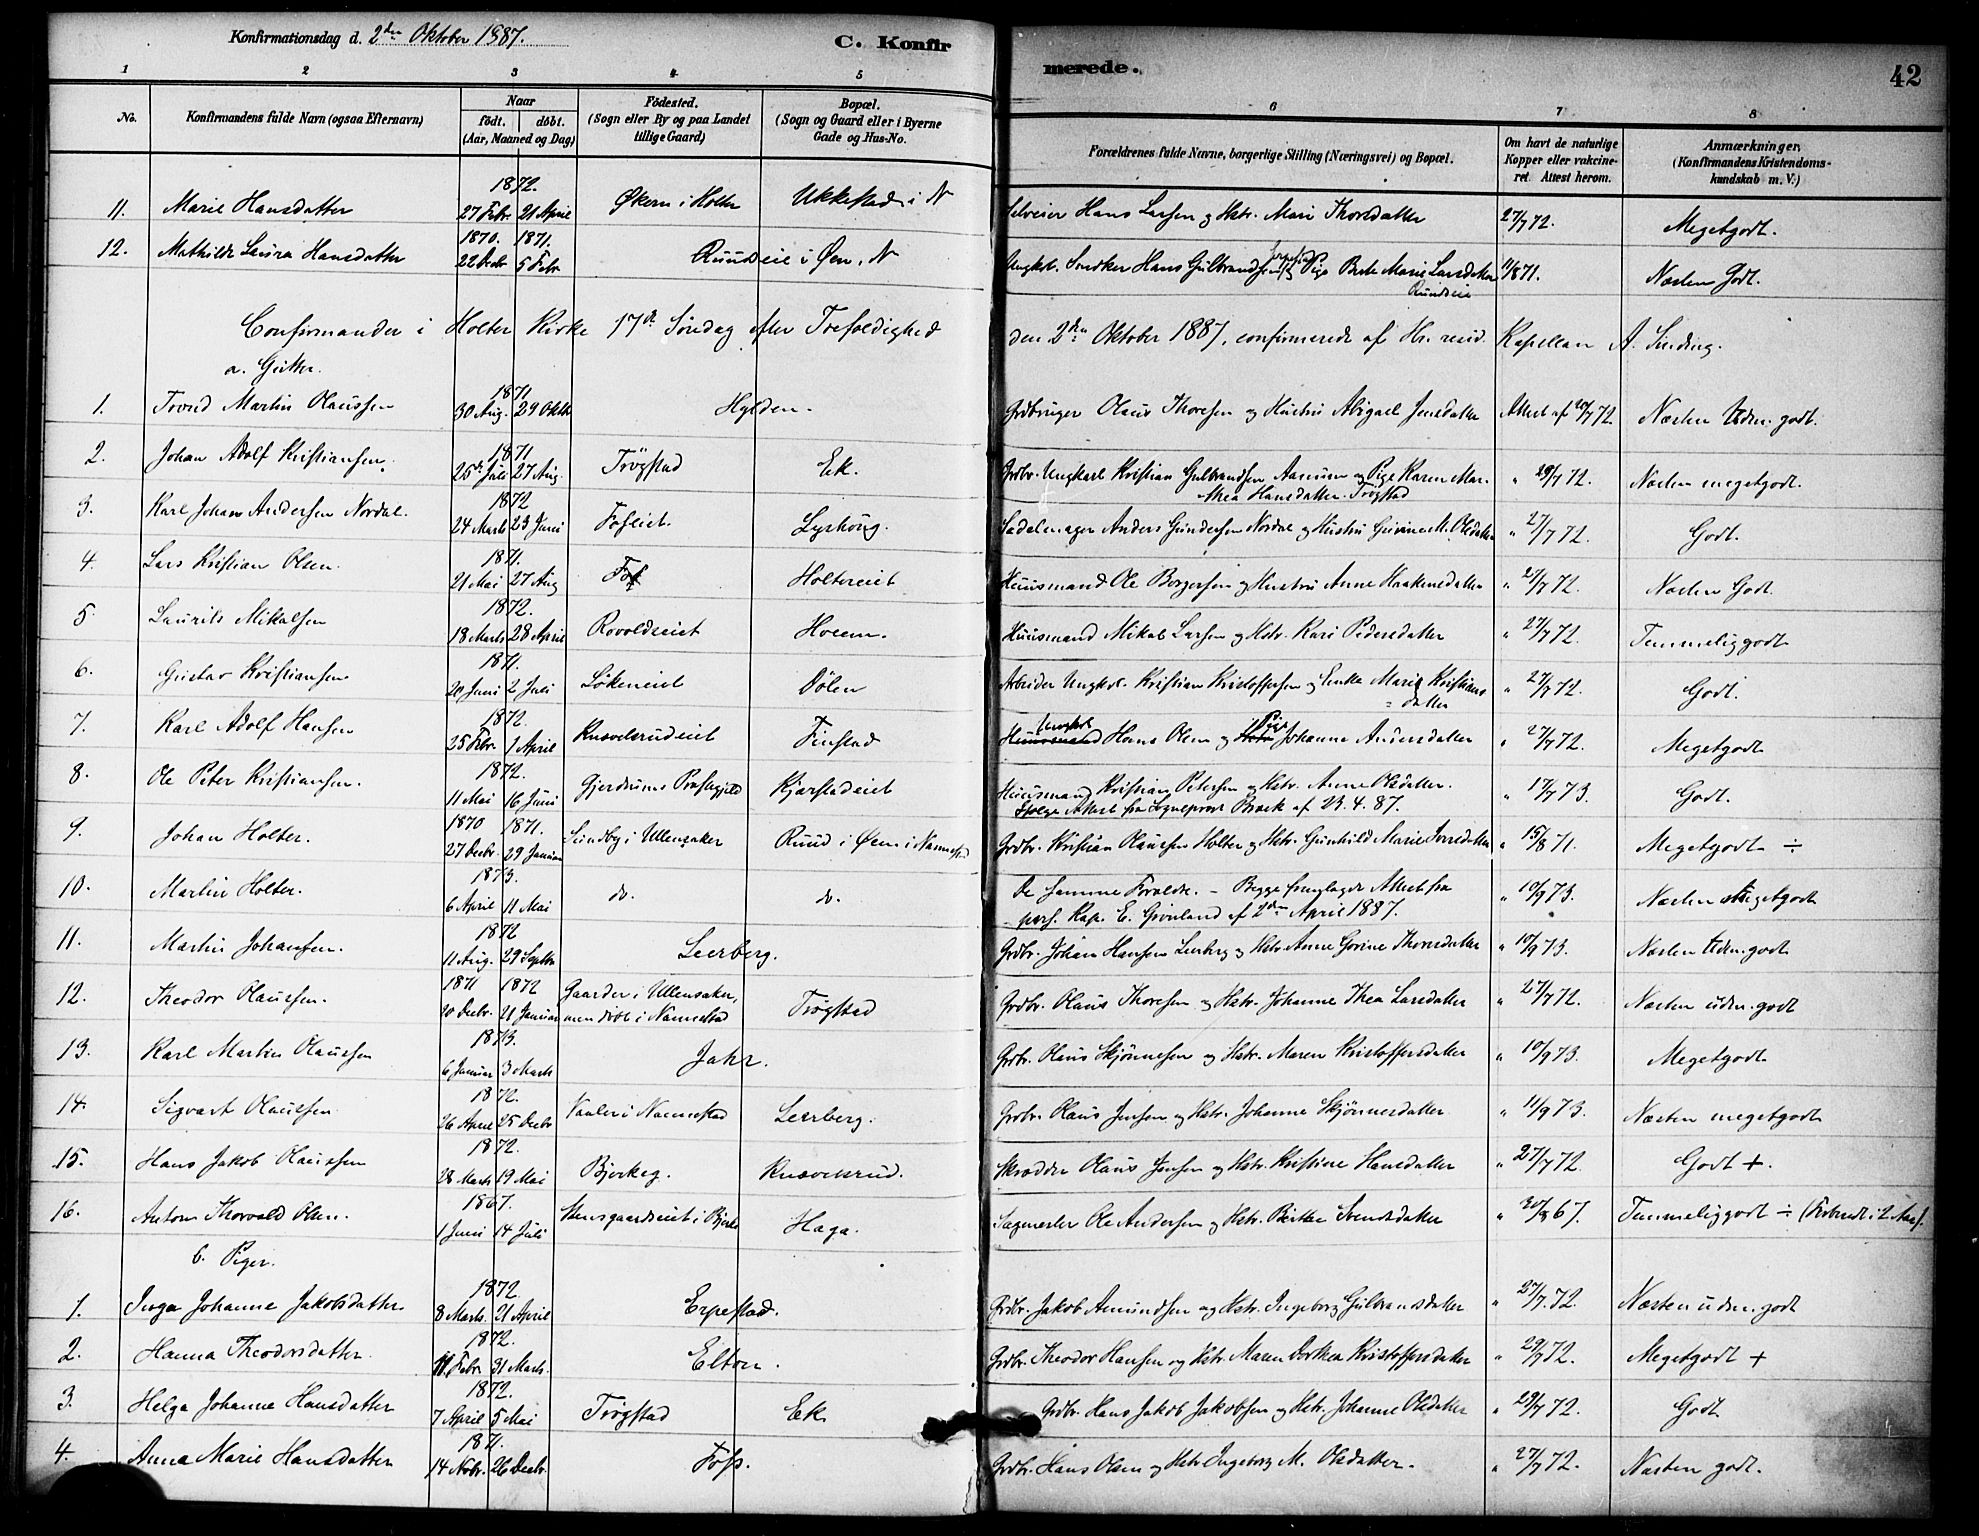 Konfirmationsdag d. 2den Oktober 1887.
C. Konfirmerede.
42
1 2 3 4 5 6 7 8
No. Konfirmandens fulde Navn (ogsaa Efternavn) Naar født. døbt. (Aar, Maaned og Dag) Födested. (Sogn eller By og paa Landet tillige Gaard) Bopæl. (Sogn og Gaard eller i Byerne Gade og Hus-No. Forældrenes fulde Navne, borgerlige Stilling (Næringsvei) og Bopæl. Om havt de naturlige Kopper eller vakcineret. Attest herom. Anmærkninger. (Konfirmandens Kristendomskundskab m. V.)
11. Marie Hansdatter 1872. 27 Febr. 21 April Økern i Holter Ukkestad i N Selveier Hans Larsen og Hstr. Mari Thorsdatter 27/7 72. Megetgodt.
12. Mathilde Laura Hansdatter 1870. 1871. 22 Decbr 5 Febr. Ruudseie i Øen. N Ungk. Snedker Hans Gulbrandsen Pige Berte Marie Larsdatter Ruudseie 11/8 71. Næsten Godt.
Confirmander i Holter Kirke 17de Søndag efter Trefoldighed den 2den Oktober 1887, confirmerede af Hr. resid. Kapellan A. Sinding.
a. Gutter.
1. Trond Martin Olaussen 1871 30 Aug. 29 Oktb Hylden. Grdbruger Olaus Thoresen og Hustru Abigael Jensdatter Attest af 20/7 72 Næsten Udm. godt.
2. Johan Adolf Kristiansen. 1871 25de Juli 27 Aug. Trögstad Ek. Grdbr. Ungkarl Kristian Gulbrandsen Aamum og Pige Karen Mar. Thea Hansdatter Trögstad " 29/7 72. Næsten megetgodt.
3. Karl Johan Andersen Nordal. 1872 24 Marts 23 Juni Foseiet. Lyshoug. Sadelmager Anders Gundersen Nordal og Hustru M. Olsdatter " 27/7 72. Godt.
4. Lars Kristian Olsen. 1871. 21 Mai 27 Aug Fos Holtereiet Huusmand Ole Borgersen og Hustru Anne Haakensdatter " 27/7 72. Næsten Godt.
5. Laurits Mikalsen 1872. 18 Marts 28 April Rovoldseiet Holum. Huusmand Mikal Larsen og Hstr. Kari Pedersdatter " 27/7 72. Temmeliggodt
6. Gustav Kristiansen 1871. 20 Juni 2 Juli Lökeneiet Dölen Arbeider Ungkl. Kristian Kristoffersen og Enke Marie Kristiansdatter " 27/7 72. Godt.
7. Karl Adolf Hansen 1872. 25 Febr. 1 April Knævelsrudeiet Finstad Huusmand Ungkl Hans Olsen og Hstr Pige Johanne Andersdatter " 27/7 72. Megetgodt
8. Ole Peter Kristiansen. 1872. 11 Mai 16 Juni Gjerdrums Præstegjeld Kjærstadeiet Huusmand Kristian Petersen og Hstr. Anne Olsdatter. Ifølge Attest fra Sogneprest Brock af 23.4.87. " 17/7 73. Godt.
9. Johan Holter. 1870 1871. 27 Decbr. 29 Januar Sundby i Ullensaker Ruud i Øen i Nannestad Grdbr. Kristian Olaussen Holter og Hstr. Gunhild Marie " 15/8 71. Megetgodt ÷
10. Martin Holter. 1873. 6 April 11 Mai do. do. De samme Forældre. – Begge fremlagde Attest fra pers. Kap. E. Grönland af 2den April 1887. " 10/9 73. Næsten Megetgodt
11. Martin Johansen. 1872 11 Aug. 29 Septbr Leerberg. Grdbr. Johan Hansen Leerberg og Hstr. Anne Gorine Thorsdatter " 10/9 73. Næsten Udm. godt
12. Theodor Olaussen. 1871 1872 20 Decbr. 21 Januar Gaarder i Ullensaker, men døbt i Nannestad Trögstad Grdbr. Olaus Thoresen og Hstr. Johanne Thea Larsdatter " 27/7 72. Næsten udm. godt
13. Karl Martin Olaussen 1873. 6 Januar 3 Marts Jahr. Grdbr. Olaus Skjönnesen og Hstr. Maren Kristoffersdatter " 10/9 73. Megetgodt
14. Sigvart Olaussen. 1872. 26 April 25 Decbr i Nannestad Leerberg. Grdbr. Olaus Jensen og Hstr. Johanne Skjönnesdatter " 11/9 73. Næsten megetgodt
15. Hans Jakob Olaussen 1872. 28 Marts 19 Mai Bjerkeg. Knævelsrud. Skrædder Olaus Jensen og Hstr. Kristine Hansdatter " 27/7 72. Godt +.
16. Anton Thorvald Olsen. 1867. 1 Juni 14 Juli Stensgaardseiet i Bjerke Haga. Sagmester Ole Andersen og Hstr. Berthe Svendsdatter " 30/8 67. Temmeliggodt ÷
b. Piger.
1. Inga Johanne Jakobsdatter 1872. 8 Marts. 21 April Erpestad. Grdbr. Jakob Amundsen og Hstr. Ingeborg Gulbransdatter " 27/7. 72. Næsten udm. godt
2. Hanna Theodorsdatter. 1872. 11. Febr. 31 Marts. Elton. Grdbr. Theodor Hansen og Hstr. Maren Dorthea Kristoffersdatter " 29/7 72. Megetgodt +
3. Helga Johanne Hansdatter 1872. 7 April 5 Mai Trögstad Ek Grdbr. Hans Jakob Jakobsen og Hstr. Johanne Olsdatter " 29/7 72. Godt
4. Anna Marie Hansdatter 1871. 14 Novbr. 26 Decbr. Foss. Grdbr. Hans Olsen og Hstr. Ingeborg M. Olsdatter. " 27/7 72. Næsten godt.